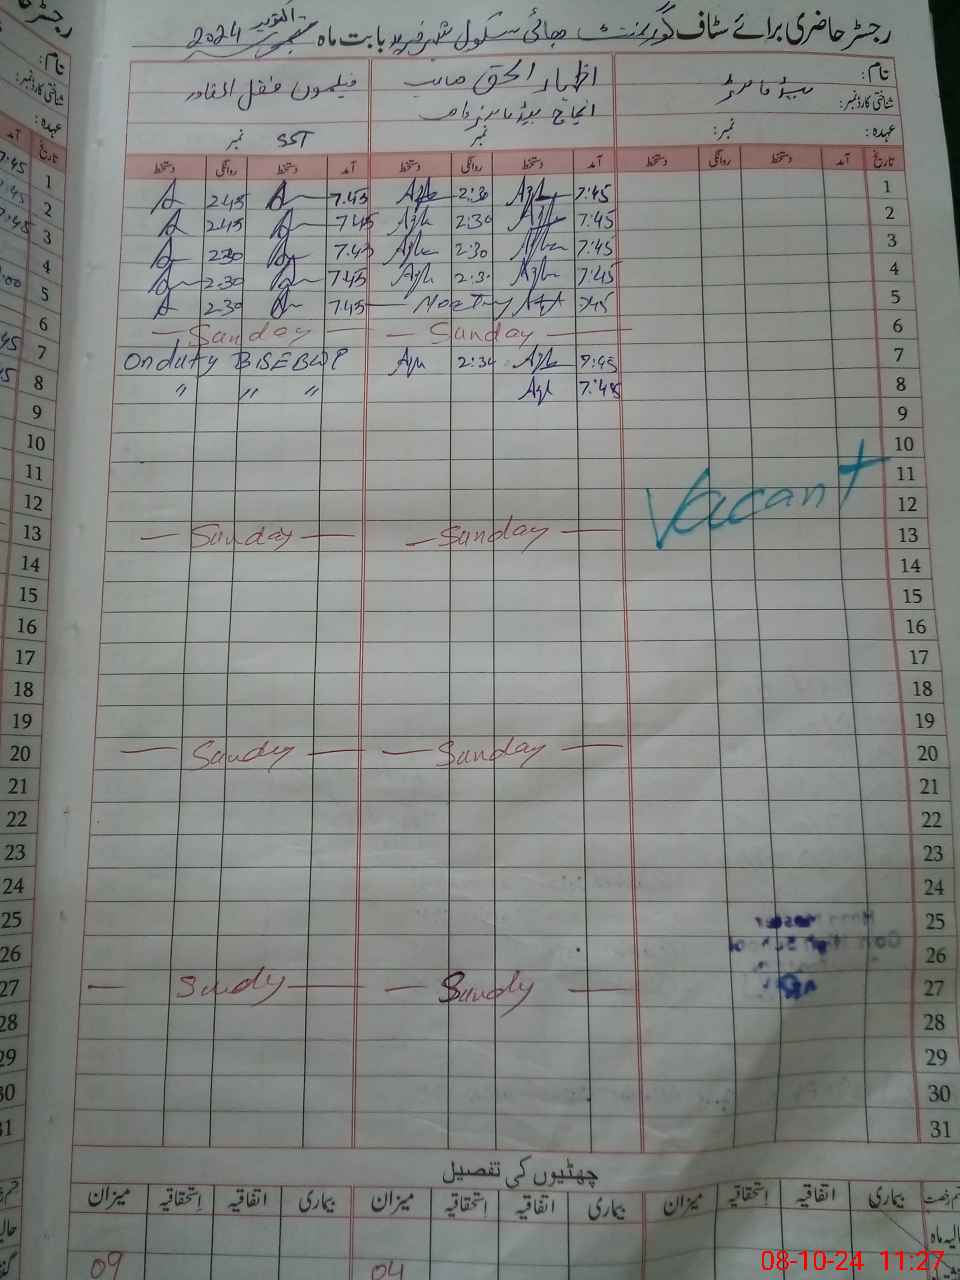 رجسٹر حاضری برائے سٹاف گورنمنٹ ہائی سکول شہر فرید بابت ماہ اکتوبر 2024
نام: ہیڈ ماسٹر
اظہار الحق صاحب
شناختی کارڈ نمبر:
انچارج ہیڈ ماسٹر
عہدہ: نمبر:
نمبر
SST نمبر
تاریخ آمد دستخط روانگی دستخط آمد دستخط روانگی دستخط آمد دستخط روانگی دستخط
1 7:45 2:30 7.45 2.45
2 7:45 2:30 7.45 2.45
3 7:45 2:30 7.45 2.30
4 7:45 2:30 7.45 2.30
5 7:45 Meeting 7.45 2.30
6 Sunday Sunday
7 7:45 2:30 On duty BISE BWP
8 7:45 " " "
9
10
11
12 Vacant
13 Sunday Sunday
14
15
16
17
18
19
20 Sunday Sunday
21
22
23
24
25
26
27 Sundy Sundy
28
29
30
31
چھٹیوں کی تفصیل
بیماری اتفاقیہ استحقاقیہ میزان بیماری اتفاقیہ استحقاقیہ میزان بیماری اتفاقیہ استحقاقیہ میزان
04 09
08-10-24 11:27